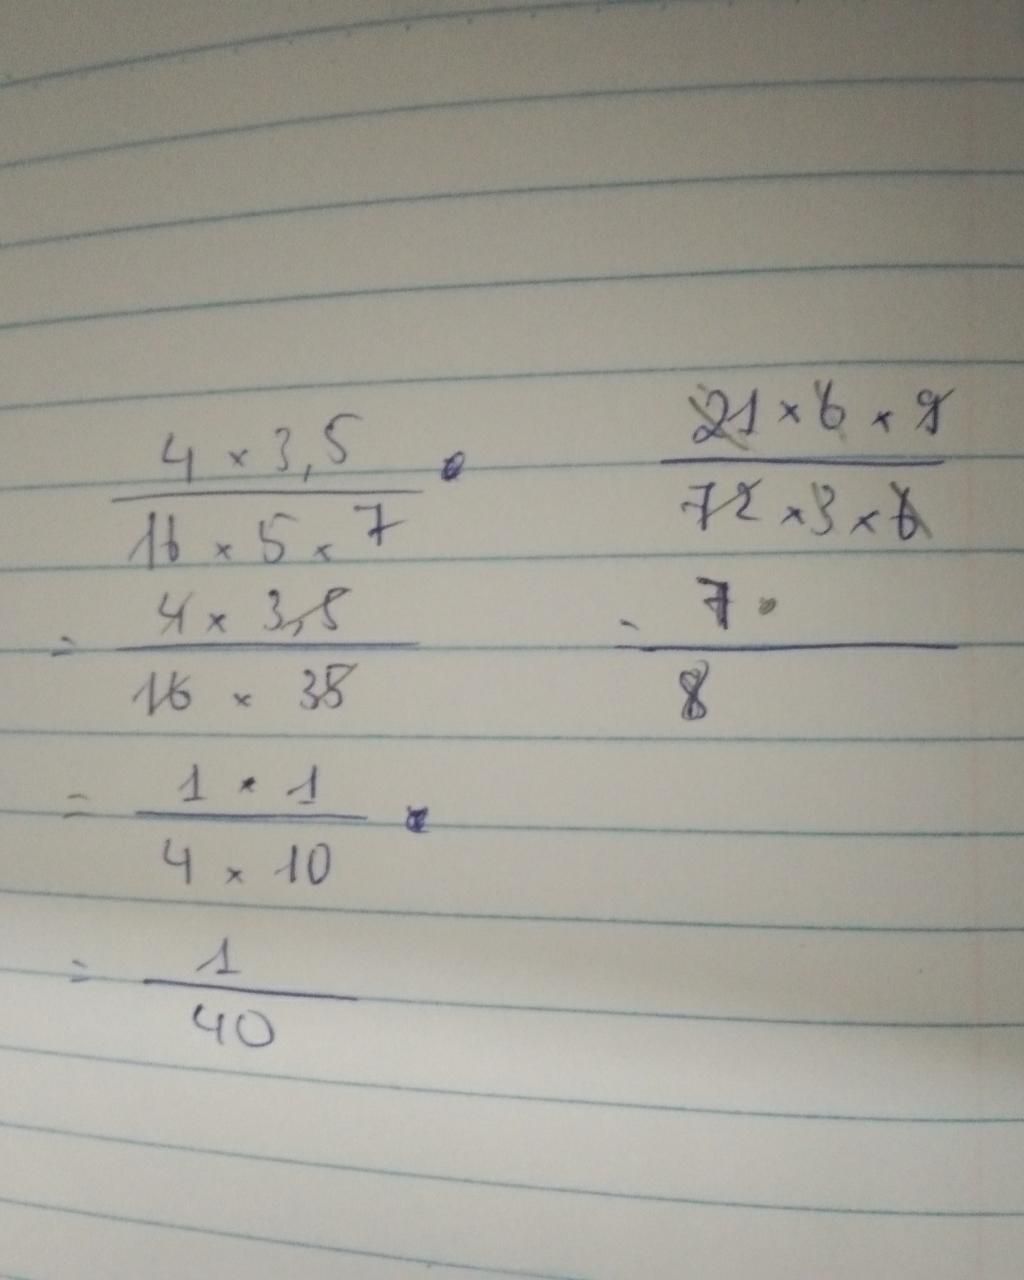 4 × 3,5
16 × 5 × 7
= 4 × 3,5
16 × 35
= 1 × 1
4 × 10
= 1
40
21 × 6 × 9
72 × 3 × 6
= 7
8